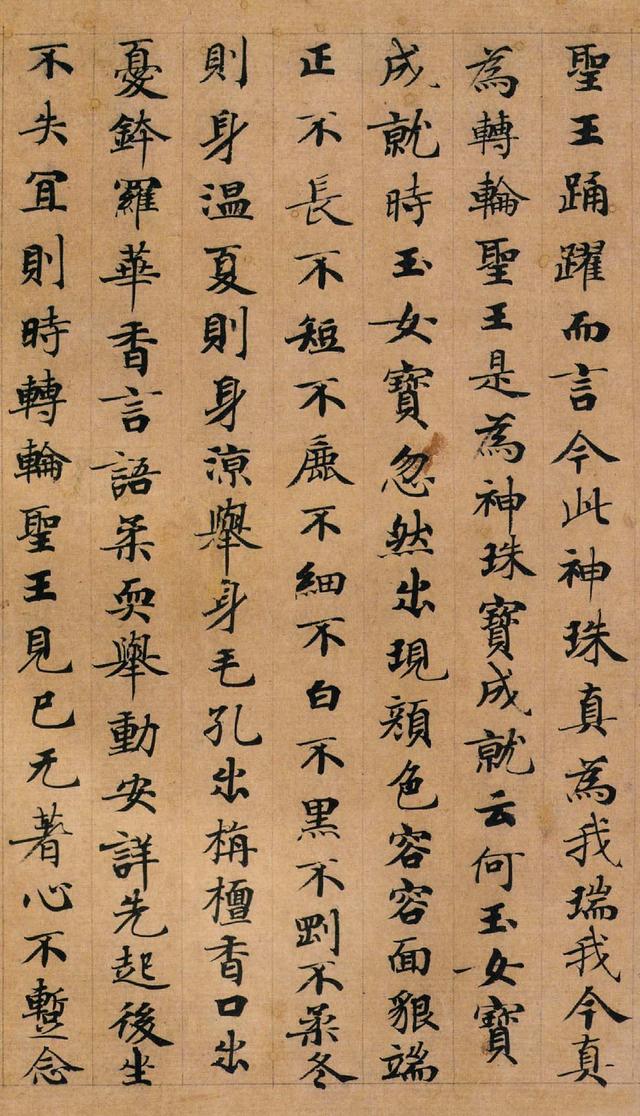 聖王踊躍而言今此神珠真為我瑞我今真
為轉輪聖王是為神珠寶成就云何玉女寶
成就時玉女寶忽然出現顏色容容面貌端
正不長不短不麁不細不白不黑不剛不柔冬
則身温夏則身涼舉身毛孔出栴檀香口出
憂鉢羅華香言語柔耎舉動安詳先起後坐
不失宜則時轉輪聖王見已无著心不蹔念